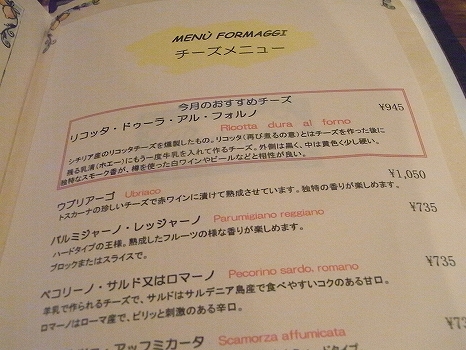 MENÙ FORMAGGI
チーズメニュー
今月のおすすめチーズ
リコッタ・ドゥーラ・アル・フォルノ ¥945
Ricotta dura al forno
シチリア産のリコッタチーズを燻製したもの。リコッタ(再び煮るの意)とはチーズを作った後に
残る乳清(ホエー)にもう一度牛乳を入れて作るチーズ。外側は黒く、中は黄色く少し硬い。
独特なスモーク香が、樽を使った白ワインやビールなどと相性が良い。
ウブリアーゴ Ubriaco ¥1,050
トスカーナの珍しいチーズで赤ワインに漬けて熟成させています。独特の香りが楽しめます。
パルミジャーノ・レッジャーノ Parumigiano reggiano ¥735
ハードタイプの王様。熟成したフルーツの様な香りが楽しめます。
ブロックまたはスライスで。
ペコリーノ・サルド又はロマーノ Pecorino sardo. romano ¥735
羊乳で作られるチーズで、サルドはサルデニア島産で食べやすいコクのある甘口。
ロマーノはローマ産で、ピリッと刺激のある辛口。
アッフミカータ Scamorza affumicata